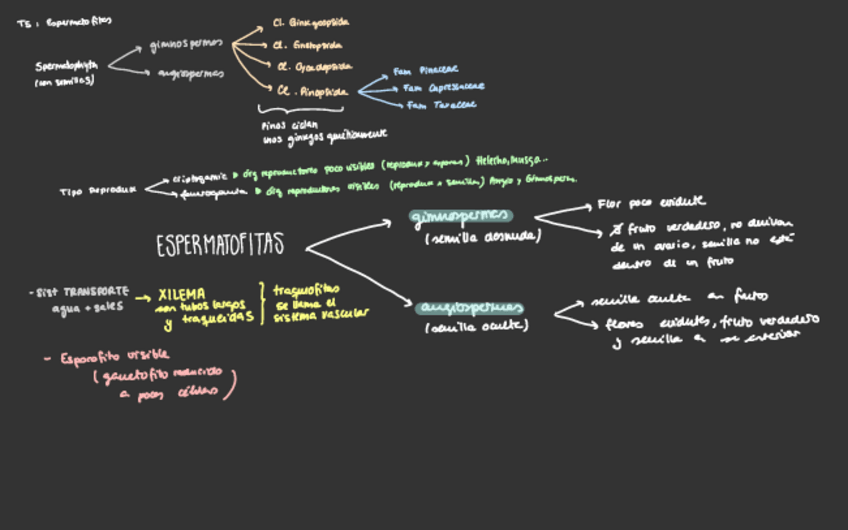 T5: Espermatofitas
Spermatophyta
(con semillas)
gimnospermas
angiospermas
Cl. Ginkgoopsida
Cl. Gnetopsida
Cl. Cycadopsida
Cl. Pinopsida
Fam Pinaceae
Fam Cupressaceae
Fam Taxaceae
Pinos ciclan
unos ginkgos
Tipo Reproduc
criptogamic órg reproductores poco visibles (reproduc x esporas) Helecho, musgo...
fanerogamia órg reproductores visibles (reproduc x semillas) Angio y Gimnosperm.
ESPERMATOFITAS
gimnospermas
(semilla desnuda)
Flor poco evidente
fruto verdadero, no derivan
de un ovario, semilla no está
dentro de un fruto
angiospermas
(semilla oculta)
semilla oculta en fruto
flores evidentes, fruto verdadero
y semilla en su interior
- Sist TRANSPORTE
agua + sales
XILEMA
son tubos largos
y traqueidas
traqueofitas
se llama el
sistema vascular
- Esporofito visible
(gametofito reducido
a pocas células)